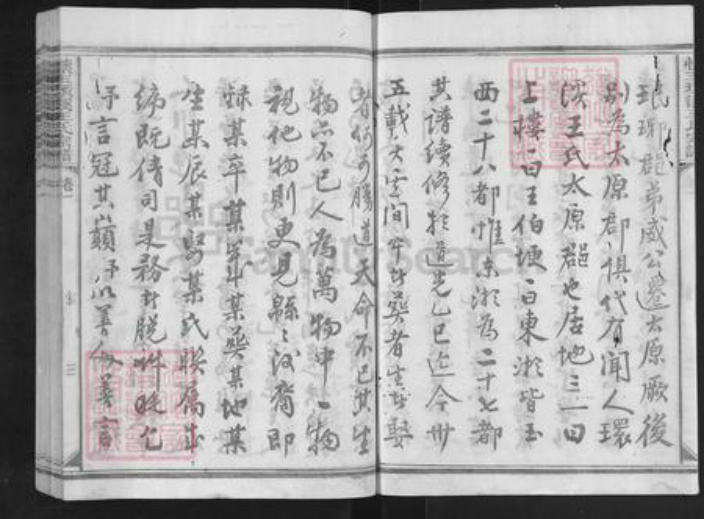 琅琊郡弟威公遷太原厥後
別為太原郡俱代有聞人環
溪王氏太原郡也居地三一曰
上樓一曰王伯埂一曰東湖皆玉
西二十八都惟東湖為二十七都
其譜續修於道光乙巳迄今卅
五載大宗間卒葬者生娶
者何可勝道天命不已其生
物亦不已人為萬物中一物
視他物則更見緜緜後裔即
某卒某年某葬某地某
生某辰某娶某氏聯屬成
編既倩司是務於脫竹時乞
予言冠其巔予以善人善言
卷一
三
FamilySearch